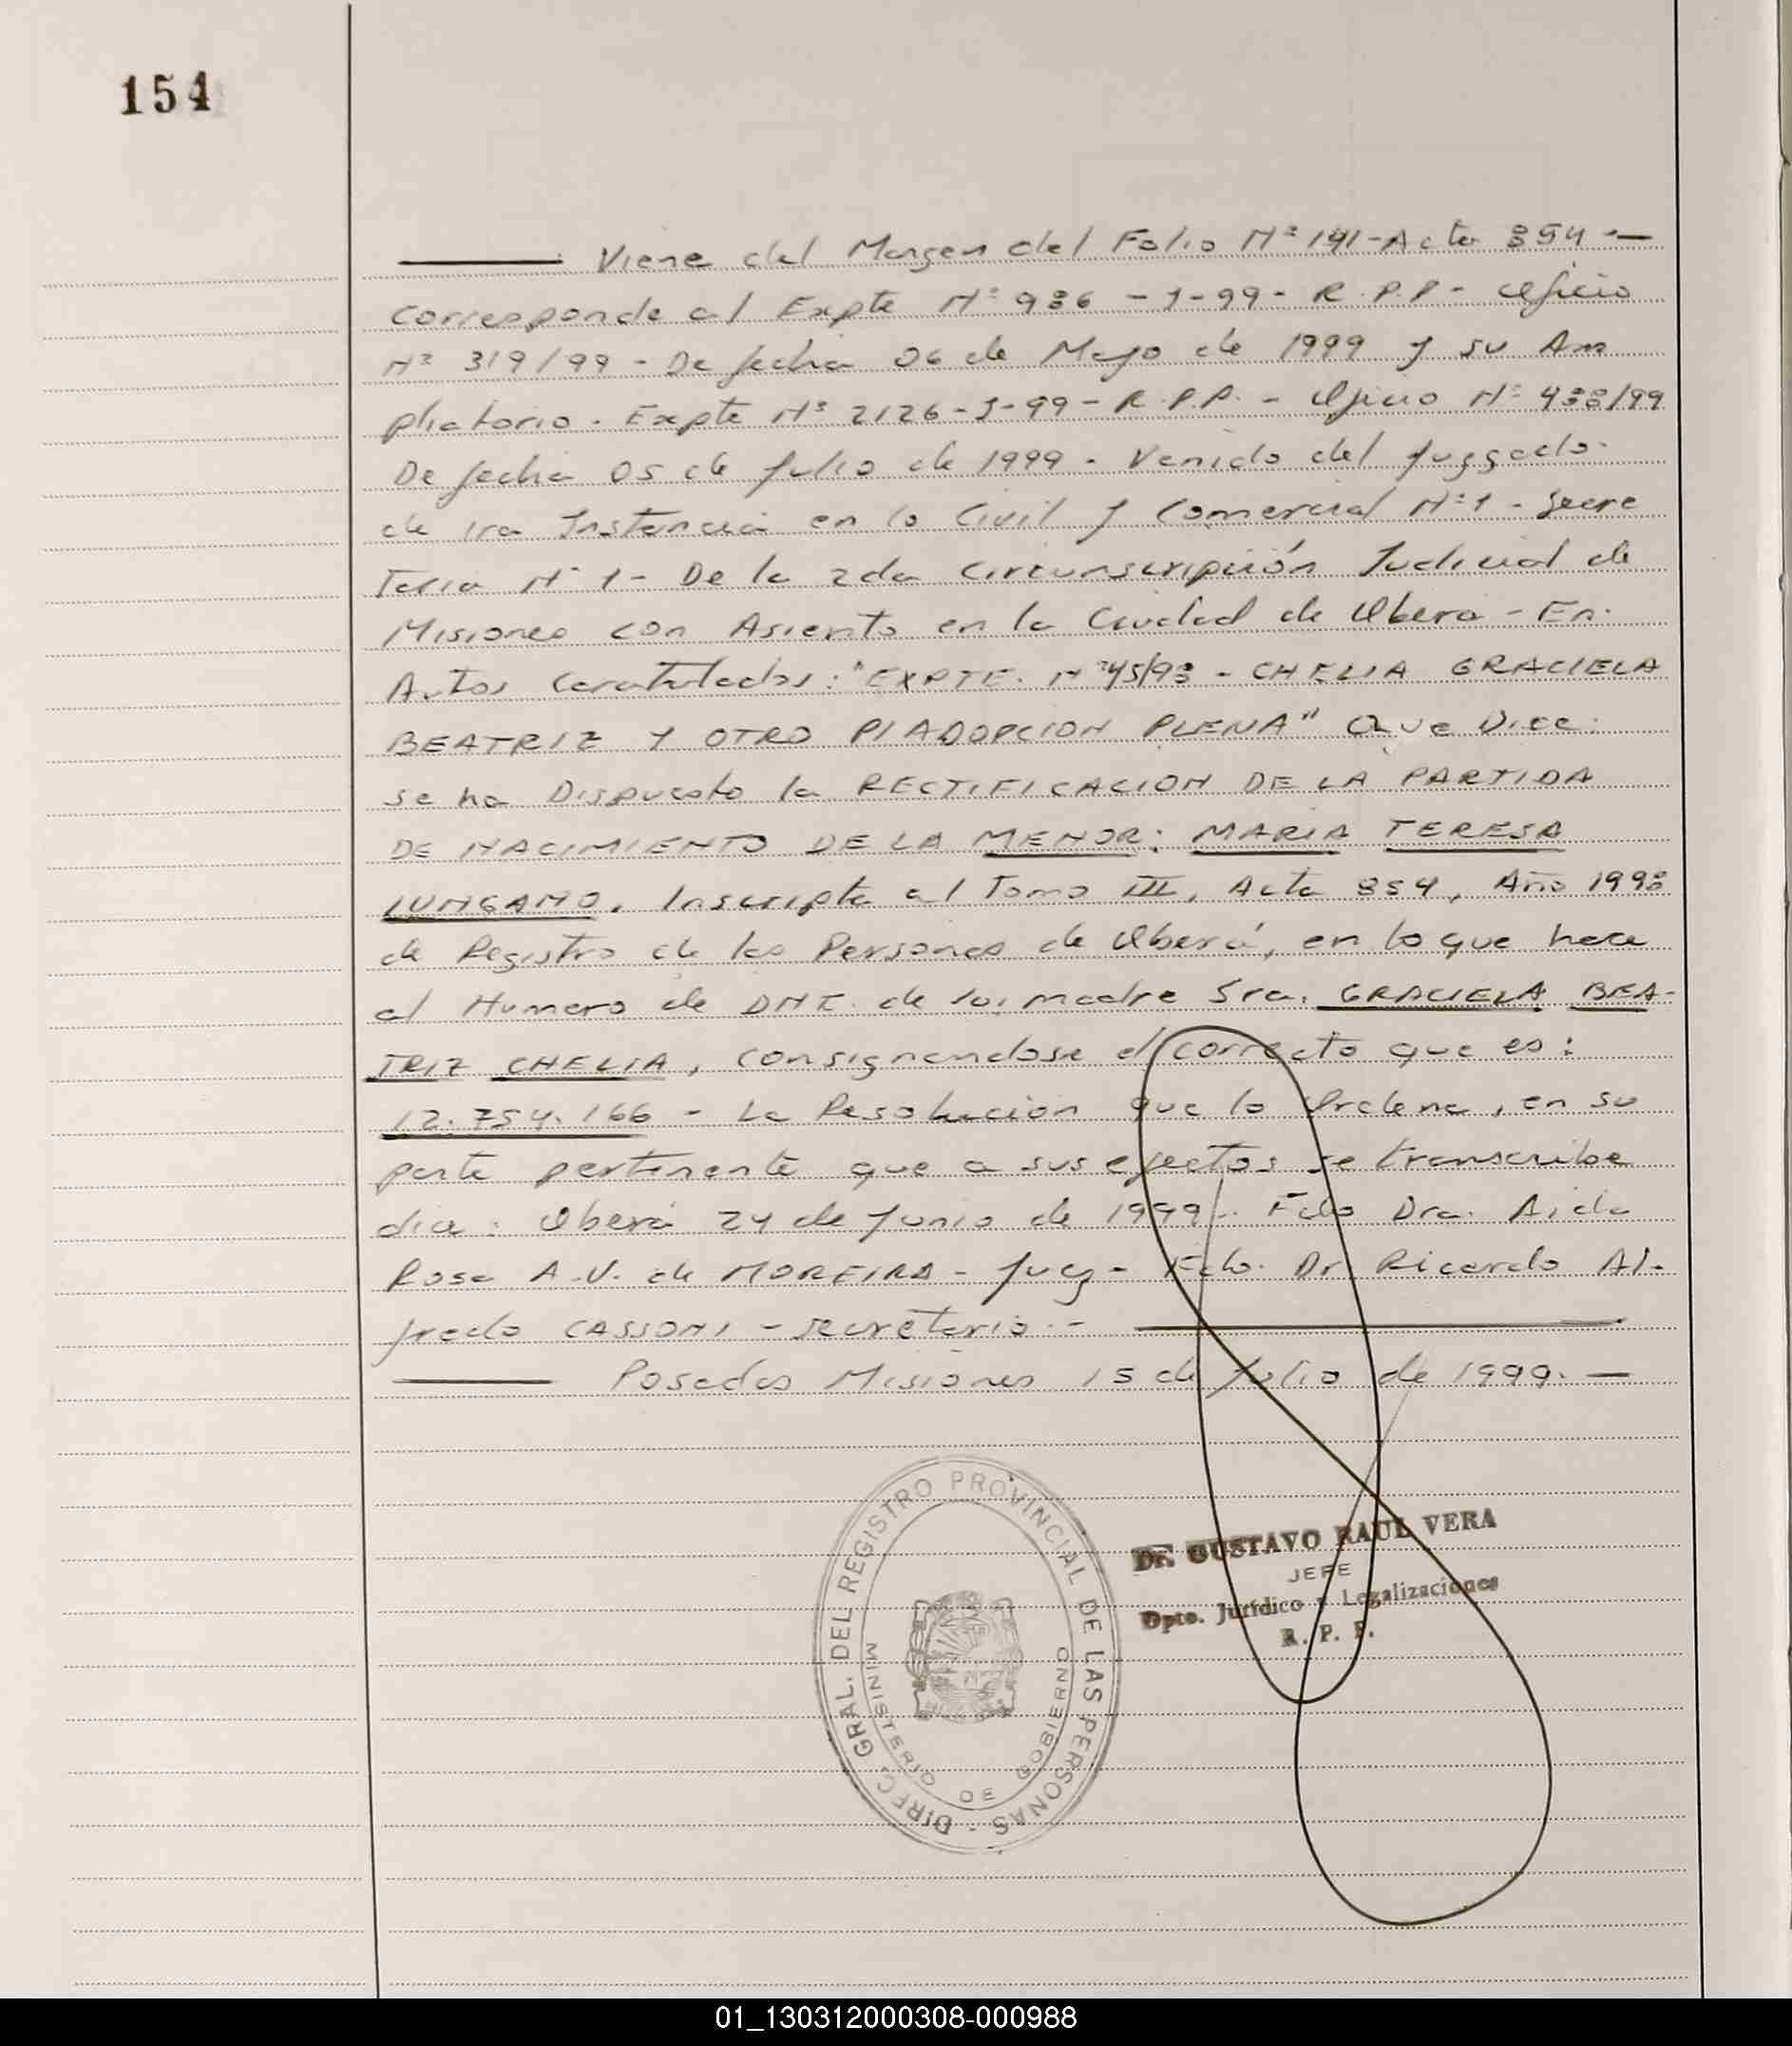 154
Viene del Margen del Folio Nº 191-Acta 854.-
Corresponde al Expte Nº 986 - J-99- R.P.P- Oficio
Nº 319/99 - De fecha 06 de Mayo de 1999 y su Am
pliatorio. Expte Nº 2126-J-99- R.P.P. - Oficio Nº 488/99
De fecha 05 de Julio de 1999 - Venido del Juzgado
de 1ra Instancia en lo Civil y Comercial Nº 1 - Secre
taria Nº 1- De la 2da Circunscripción Judicial de
Misiones con Asiento en la Ciudad de Obera - En
Autos Caratulados: "EXPTE. Nº 45/98 - CHELIA GRACIELA
BEATRIZ Y OTRO P/ADOPCION PLENA" Que Dice:
se ha Dispuesto la RECTIFICACION DE LA PARTIDA
DE NACIMIENTO DE LA MENOR: MARIA TERESA
LUNGAMO. Inscripta al Tomo III, Acta 854, Año 1998
de Registro de las Personas de Oberá, en lo que hace
al Numero de DNI. de su madre Sra. GRACIELA BEA-
TRIZ CHELIA, consignandose el correcto que es:
12.754.166 - La Resolucion que lo Ordena, en su
parte pertinente que a sus efectos se transcribe
dice: Oberá 24 de Junio de 1999.- Fdo Dra. Aida
Rosa A.V. de MOREIRA - Juez - Fdo. Dr. Ricardo Al-
fredo CASSONI - Secretario.-
Posadas Misiones 15 de Julio de 1999.-
DIREC. GRAL. DEL REGISTRO PROVINCIAL DE LAS PERSONAS -
MINISTERIO DE GOBIERNO
Dr. GUSTAVO RAUL VERA
JEFE
Dpto. Jurídico y Legalizaciones
R. P. P.
01_130312000308-000988